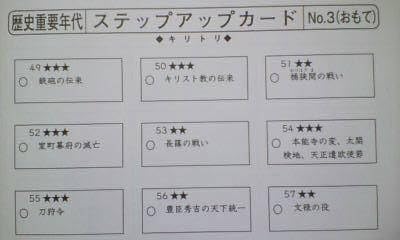 歴史重要年代 ステップアップカード No.3(おもて)
◆キリトリ◆
49 ★★★
○ 鉄砲の伝来
50 ★★★
○ キリスト教の伝来
51 ★★
おけはざま
○ 桶狭間の戦い
52 ★★★
○ 室町幕府の滅亡
53 ★★
○ 長篠の戦い
54 ★★★
○ 本能寺の変、太閤
検地、天正遣欧使節
55 ★★★
○ 刀狩令
56 ★★
○ 豊臣秀吉の天下統一
57 ★★
○ 文禄の役